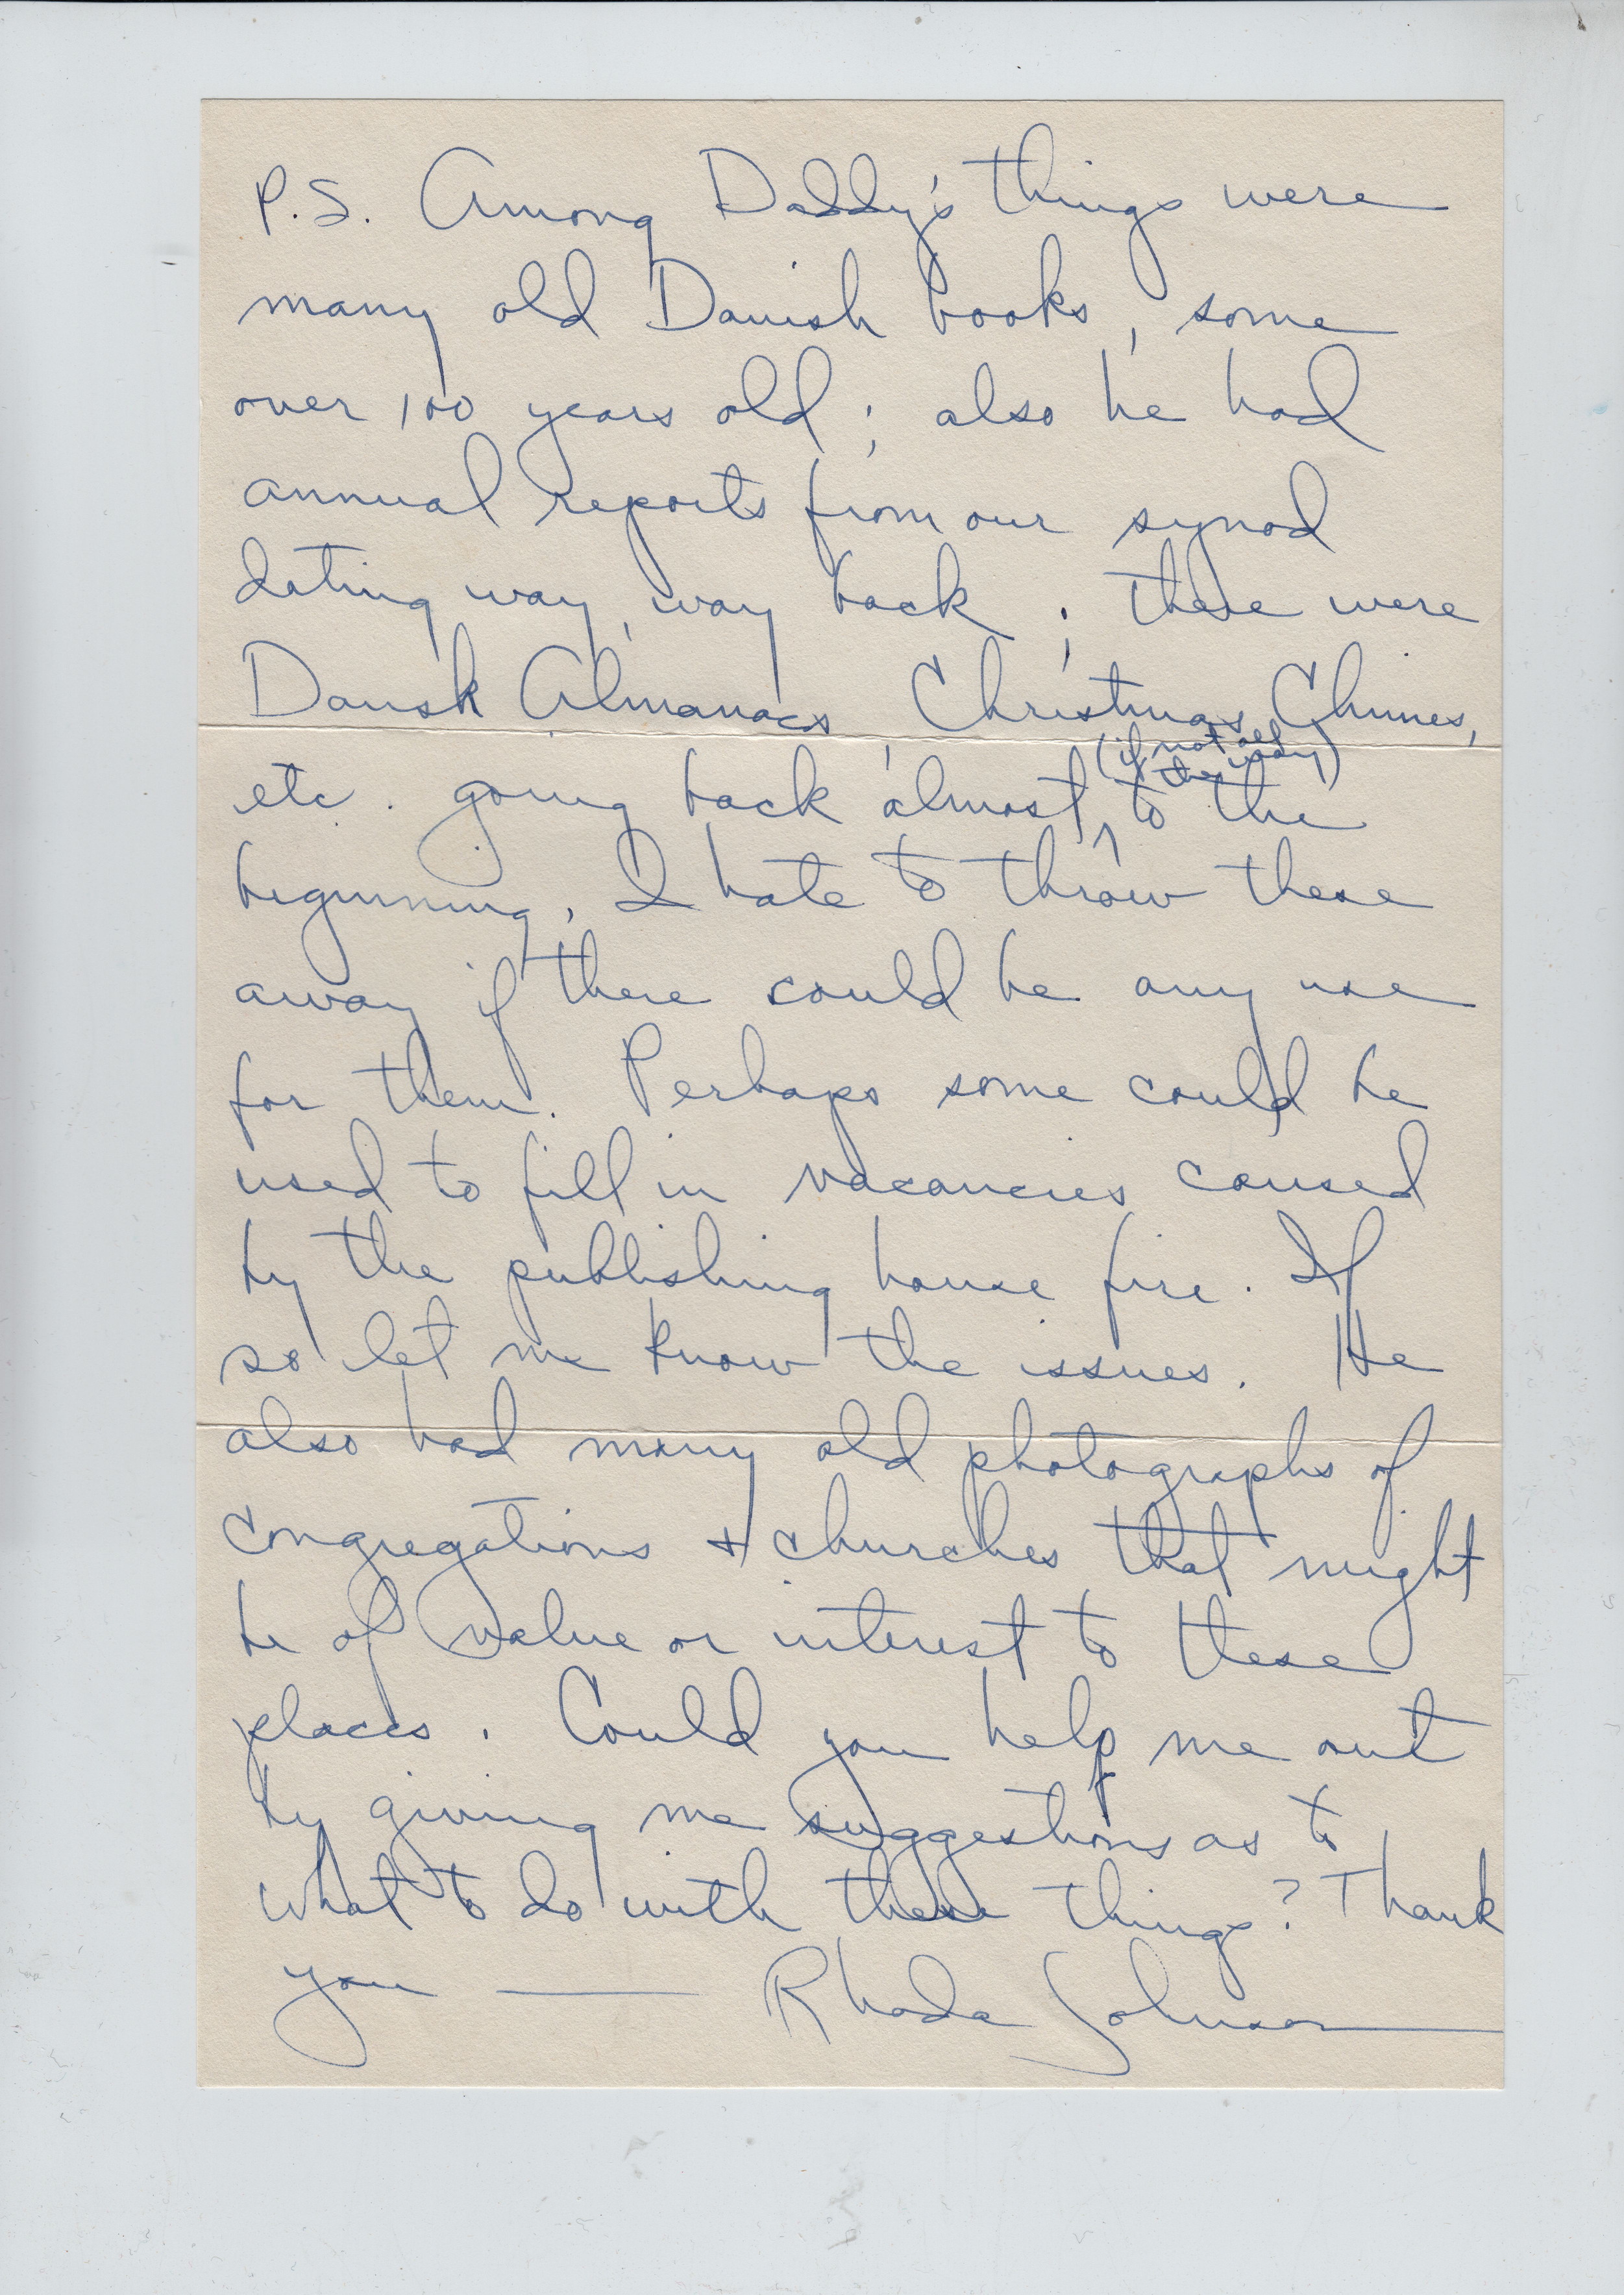 P.S. Among Daddy's things were
many old Danish books, some
over 100 years old; also he had
annual reports from our synod
dating way, way back; there were
Dansk Almanacs, Christmas Chimes,
(if not all
the way)
etc. going back almost ^ to the
beginning. I hate to throw these
away if there could be any use
for them. Perhaps some could be
used to fill in vacancies caused
by the publishing house fire. If
so let me know the issues. He
also had many old photographs of
congregations & churches that might
be of value or interest to these
places. Could you help me out
by giving me suggestions as to
what to do with these things? Thank
you — Rhoda Johnson